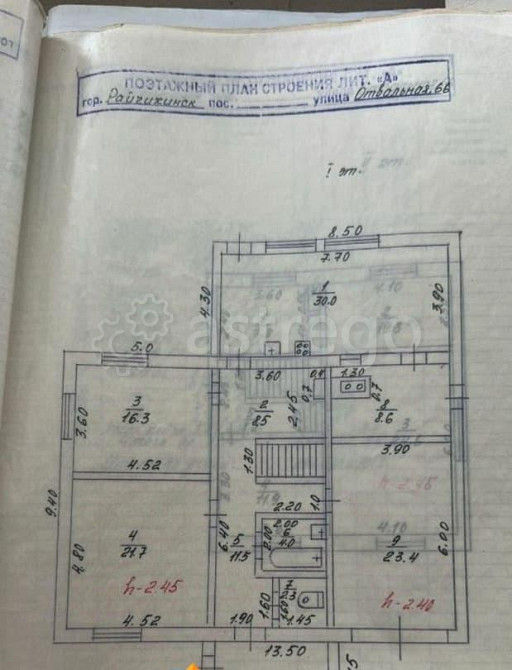 ПОЭТАЖНЫЙ ПЛАН СТРОЕНИЯ ЛИТ. «А"
гор. Райчихинск пос. улица Отвальная 66
I эт.
8.50
7.70
4.30
1
30.0
3.90
5.0
3.60
0.7
1.30
0.7
3
16.3
3.60
2
8.5
2.45
8
8.6
4.52
1.30
3.90
h-2.45
9.40
2.20
1.0
4
21.7
4.80
6.40
5
11.5
2.00
2.00
6
4.0
9
23.4
6.00
h-2.45
2.3
h-2.40
4.52
1.90
1.60
1.45
13.50
astrego